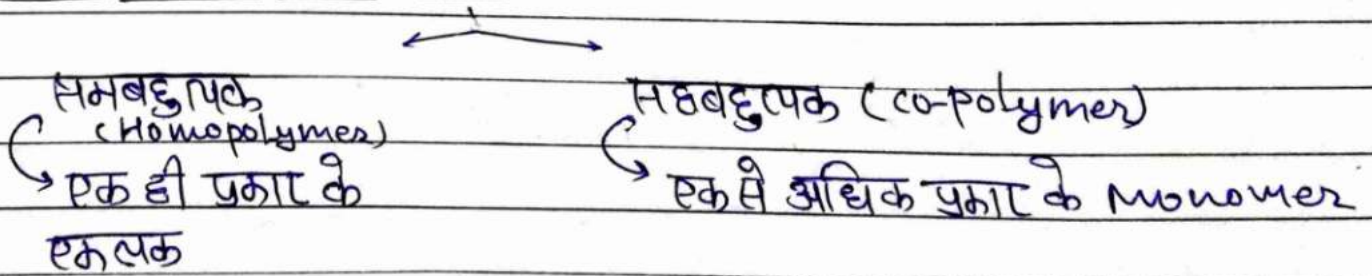 समबहुलक
(Homopolymer)
एक ही प्रकार के
एकलक
सहबहुलक (co-polymer)
एक से अधिक प्रकार के monomer